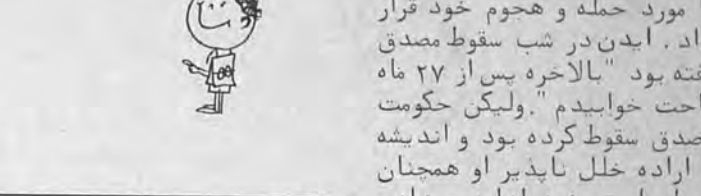 مورد حمله و هجوم خود قرار
داد . ایدن در شب سقوط مصدق
گفته بود "بالاخره پس از ۲۷ ماه
راحت خوابیدم ". ولیکن حکومت
مصدق سقوط کرده بود و اندیشه
اراده خلل ناپذیر او همچنان